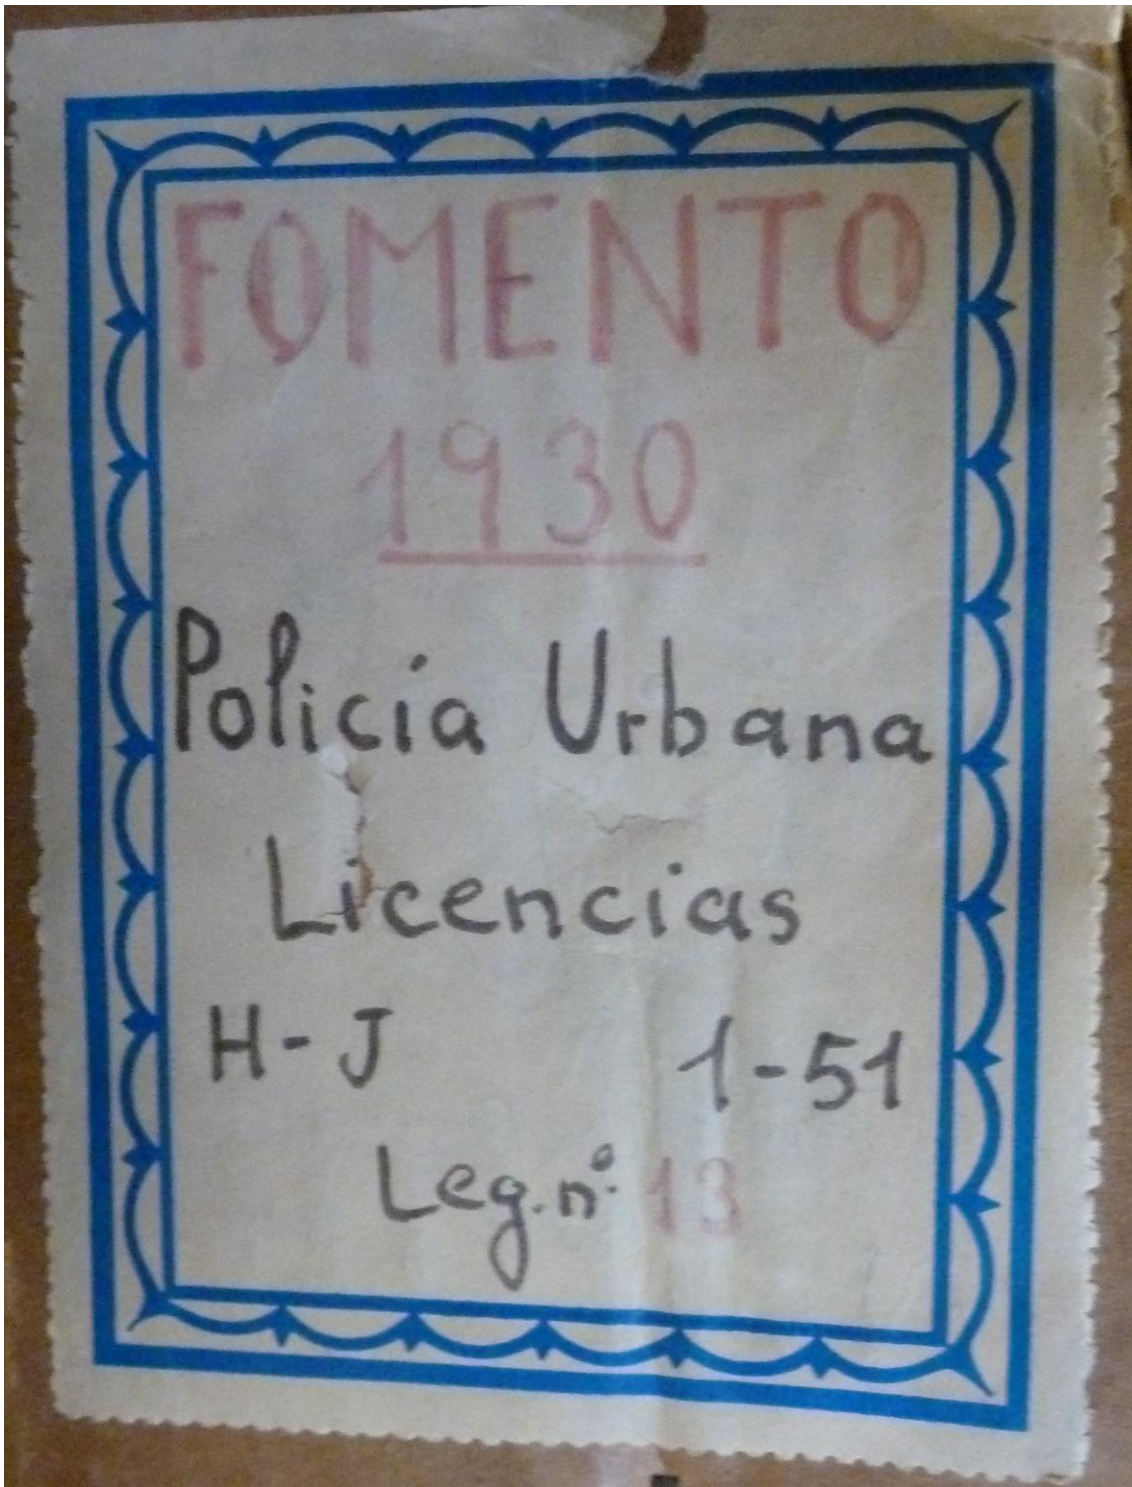 FOMENTO
1930
Policía Urbana
Licencias
H-J 1-51
Leg. nº 13